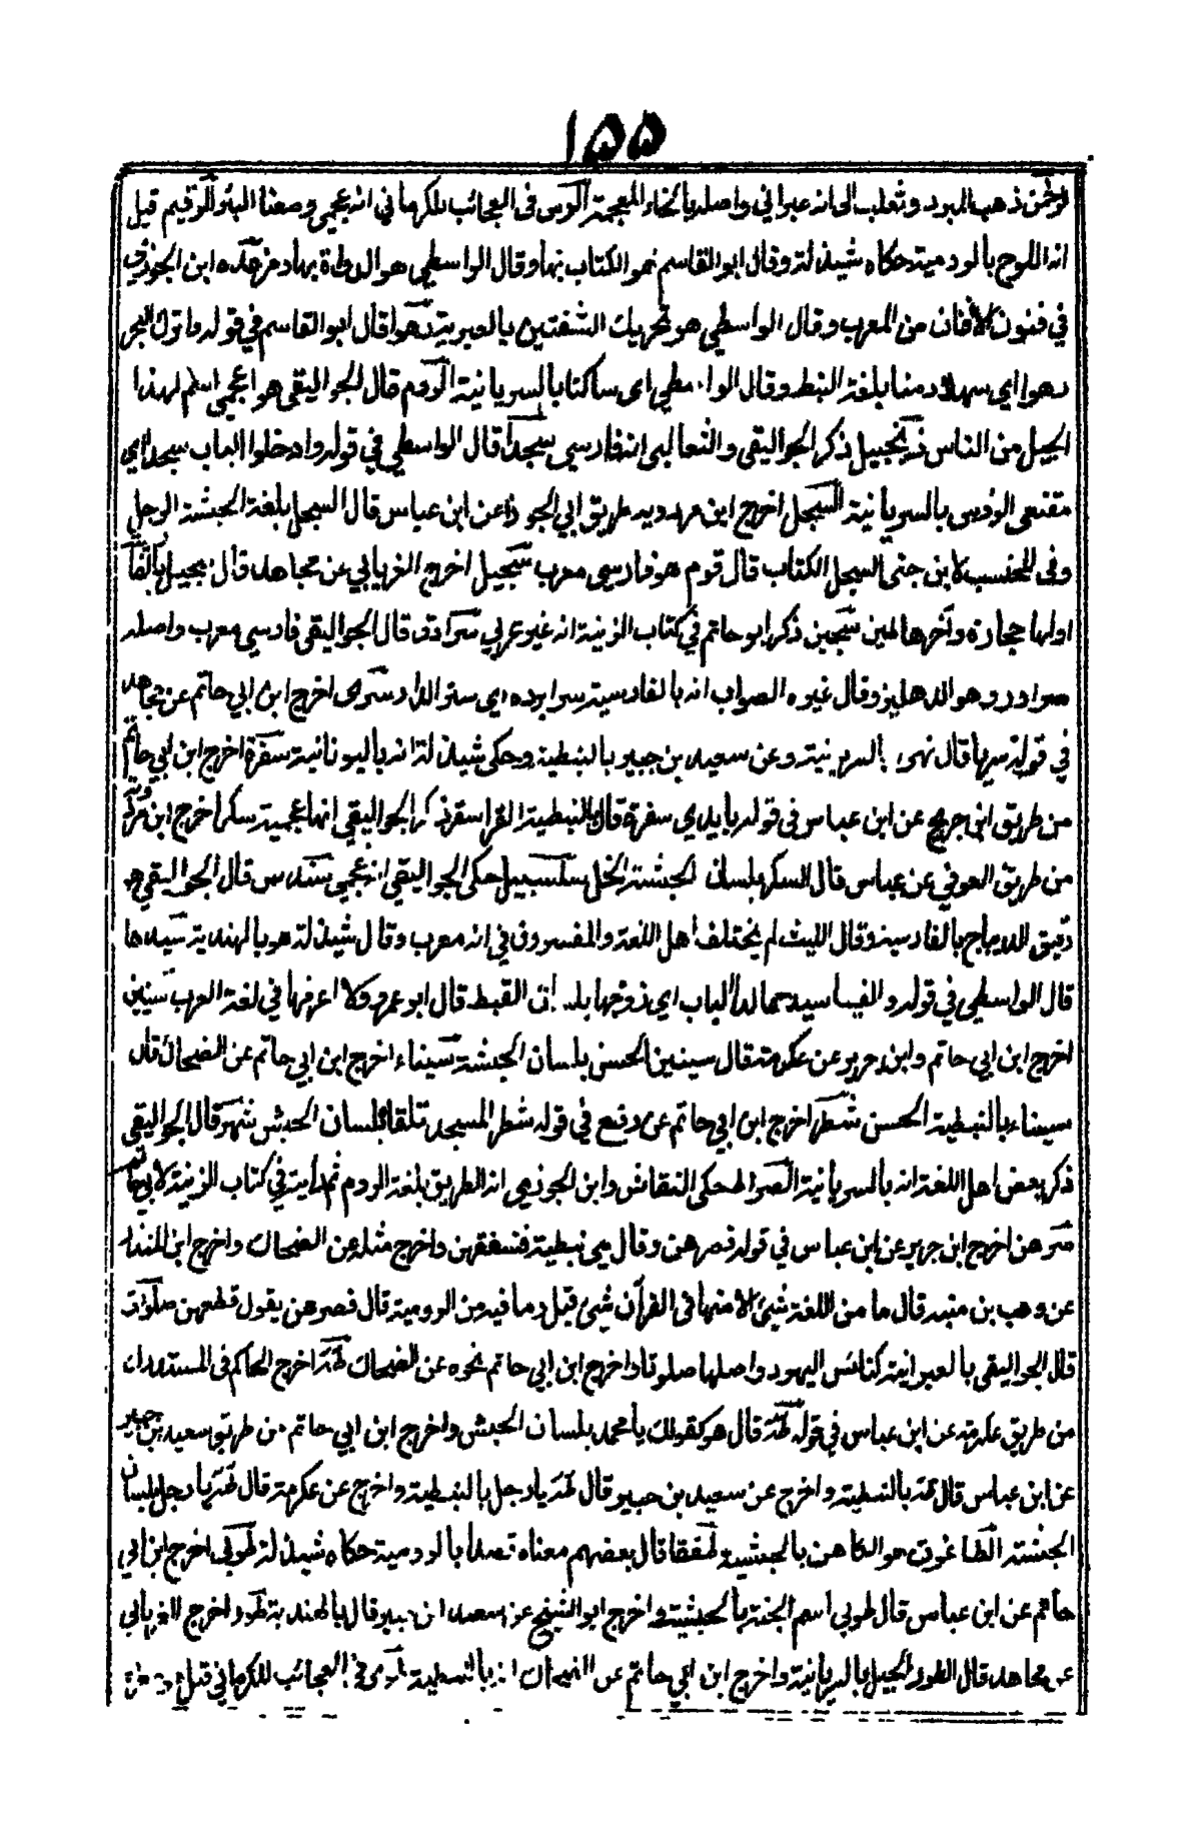 ١٥٥
الرحمن ذهب المبرد وثعلب الى انه عبراني واصله بالخاء المعجمة الرس فى العجائب للكرماني انه عجمي ومعناه البئر الرقيم قيل
انه اللوح بالرومية حكاه شيذلة وقال ابو القاسم هو الكتاب بها وقال الواسطي هو الدواة بها رمزا عده ابن الجوزي
في فنون الافنان من المعرب وقال الواسطي هو تحريك الشفتين بالعبرية رهوا قال ابو القاسم في قوله واترك البحر
رهوا اي سهلا دمثا بلغة النبط وقال الواسطي اى ساكنا بالسريانية الروم قال الجواليقي هو اعجمي اسم لهذا
الجيل من الناس زنجبيل ذكر الجواليقي والثعالبى انه فارسي سجدا قال الواسطي في قوله وادخلوا الباب سجدا اي
مقنعى الرؤس بالسريانية السجل اخرج ابن مردويه طريق ابي الجوزاء عن ابن عباس قال السجل بلغة الحبشة الرجل
وفى المحتسب لابن جنى السجل الكتاب قال قوم هو فارسي معرب سجيل اخرج الفريابي عن مجاهد قال سجيل بالفا
اولها حجارة وآخرها طين سجين ذكر ابو حاتم في كتاب الزينة انه غير عربي سرادق قال الجواليقي فارسي معرب واصله
سرادر وهو الدهليز وقال غيره الصواب انه بالفارسية سرا برده اي ستر الدار سرى اخرج ابن ابي حاتم عن مجاهد
في قوله سريا قال نهرا بالسريانية وعن سعيد بن جبير بالنبطية وحكى شيذلة انه باليونانية سفرة اخرج ابن ابي حاتم
من طريق ابن جريج عن ابن عباس فى قوله بايدي سفرة قال بالنبطية القراء سقر ذكر الجواليقي انها عجمية سكرا اخرج ابن مردويه
من طريق العوفي عن عباس قال السكر بلسان الحبشة الخل سلسبيل حكى الجواليقي انه عجمي سندس قال الجواليقي هو
رقيق الديباج بالفارسية وقال الليث لم يختلف اهل اللغة والمفسرون في انه معرب وقال شيذلة هو بالهندية سيدها
قال الواسطي في قوله والفيا سيدها لدا الباب اي زوجها بلسان القبط قال ابو عمرو ولا اعرفها في لغة العرب سينين
اخرج ابن ابي حاتم وابن جرير عن عكرمة قال سينين الحسن بلسان الحبشة سيناء اخرج ابن ابي حاتم عن الضحاك قال
سيناء بالنبطية الحسن شطر اخرج ابن ابي حاتم عن رفيع في قوله شطر المسجد تلقاء بلسان الحبش شهر قال الجواليقي
ذكر بعض اهل اللغة انه بالسريانية الصراط حكى النقاش وابن الجوزي انه الطريق بلغة الروم ثم رأيته في كتاب الزينة لابي حاتم
صرهن اخرج ابن جرير عن ابن عباس في قوله فصرهن وقال هي نبطية فشققهن واخرج مثله عن الضحاك واخرج ابن المنذر
عن وهب بن منبه قال ما من اللغة شئ الا منها فى القرآن شئ قيل وما فيه من الرومية قال فصرهن يقول قطعهن صلوات
قال الجواليقي بالعبرانية كنائس اليهود واصلها صلوتا واخرج ابن ابي حاتم نحوه عن الضحاك طه اخرج الحاكم فى المستدرك
من طريق عكرمة عن ابن عباس في قوله طه قال هو كقولك يا محمد بلسان الحبش واخرج ابن ابي حاتم من طريق سعيد بن جبير
عن ابن عباس قال طه بالنبطية واخرج عن سعيد بن جبير قال طه يا رجل بالنبطية واخرج عن عكرمة قال طه يا رجل بلسان
الحبشة الطاغوت هو الكاهن بالحبشية طفقا قال بعضهم معناه قصدا بالرومية حكاه شيذلة طوبى اخرج ابن ابي
حاتم عن ابن عباس قال طوبي اسم الجنة بالحبشية واخرج ابو الشيخ عن سعيد ابن جبير قال بالهندية طور اخرج الفريابي
عن مجاهد قال الطور الجبل بالسريانية واخرج ابن ابي حاتم عن الضحاك انه بالنبطية طوى في العجائب للكرماني قيل